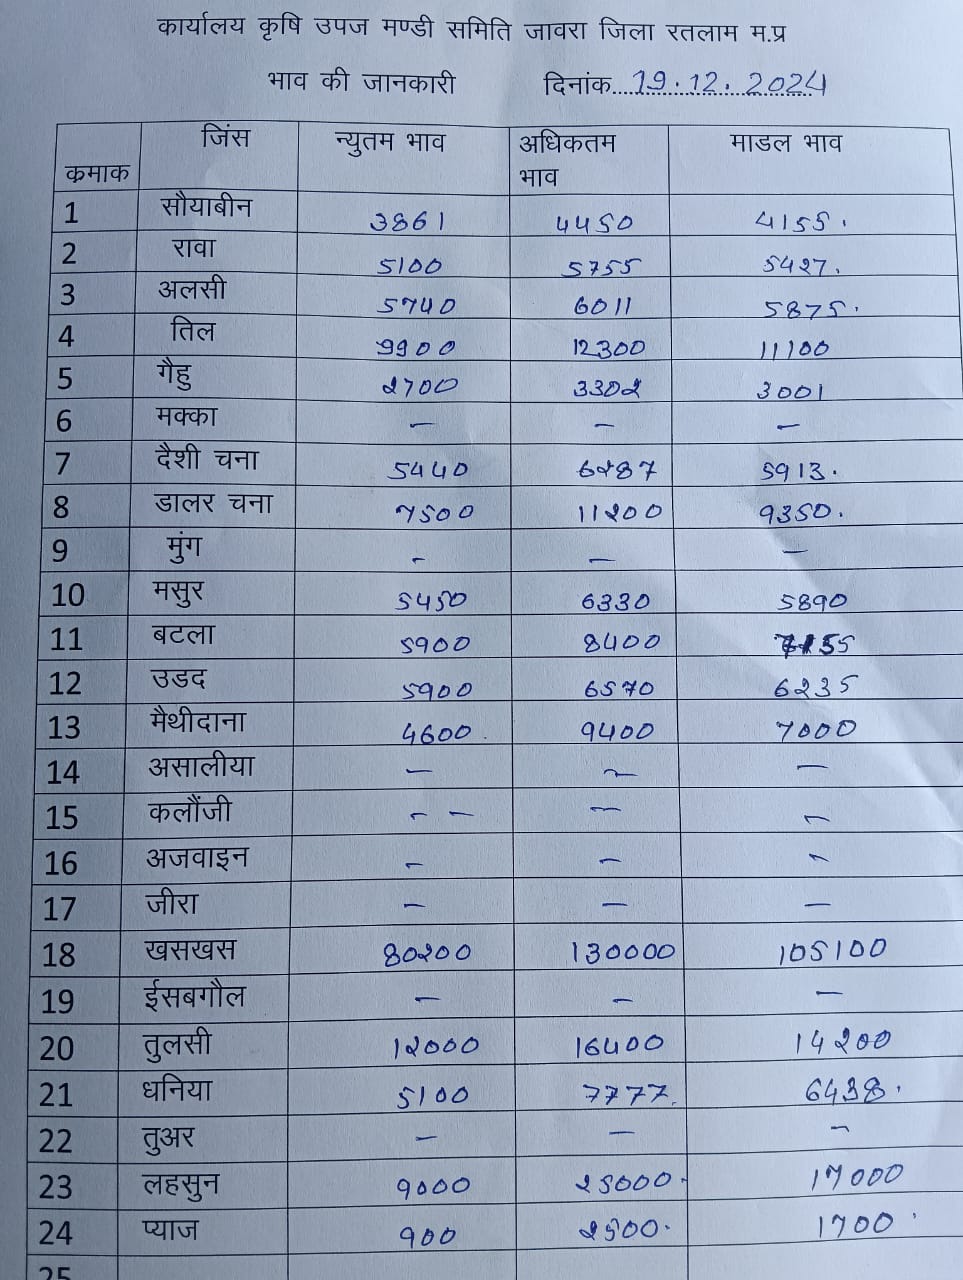 कार्यालय कृषि उपज मण्डी समिति जावरा जिला रतलाम म.प्र
भाव की जानकारी दिनांक....19.12.2024
क्रमाक जिंस न्युतम भाव अधिकतम भाव माडल भाव
1 सौयाबीन 3861 4450 4155.
2 रावा 5100 5755 5427.
3 अलसी 5740 6011 5875.
4 तिल 9900 12300 11100
5 गैहु 2700 3302 3001
6 मक्का — — —
7 दैशी चना 5440 6287 5913.
8 डालर चना 7500 11200 9350.
9 मुंग - — —
10 मसुर 5450 6330 5890
11 बटला 5900 8400 7155
12 उडद 5900 6570 6235
13 मैथीदाना 4600. 9400 7000
14 असालीया — — —
15 कलौंजी - — — —
16 अजवाइन — — —
17 जीरा — — —
18 खसखस 80200 130000 105100
19 ईसबगौल — — —
20 तुलसी 12000 16400 14200
21 धनिया 5100 7777. 6438.
22 तुअर — — —
23 लहसुन 9000 25000- 17000
24 प्याज 900 2500. 1700
25